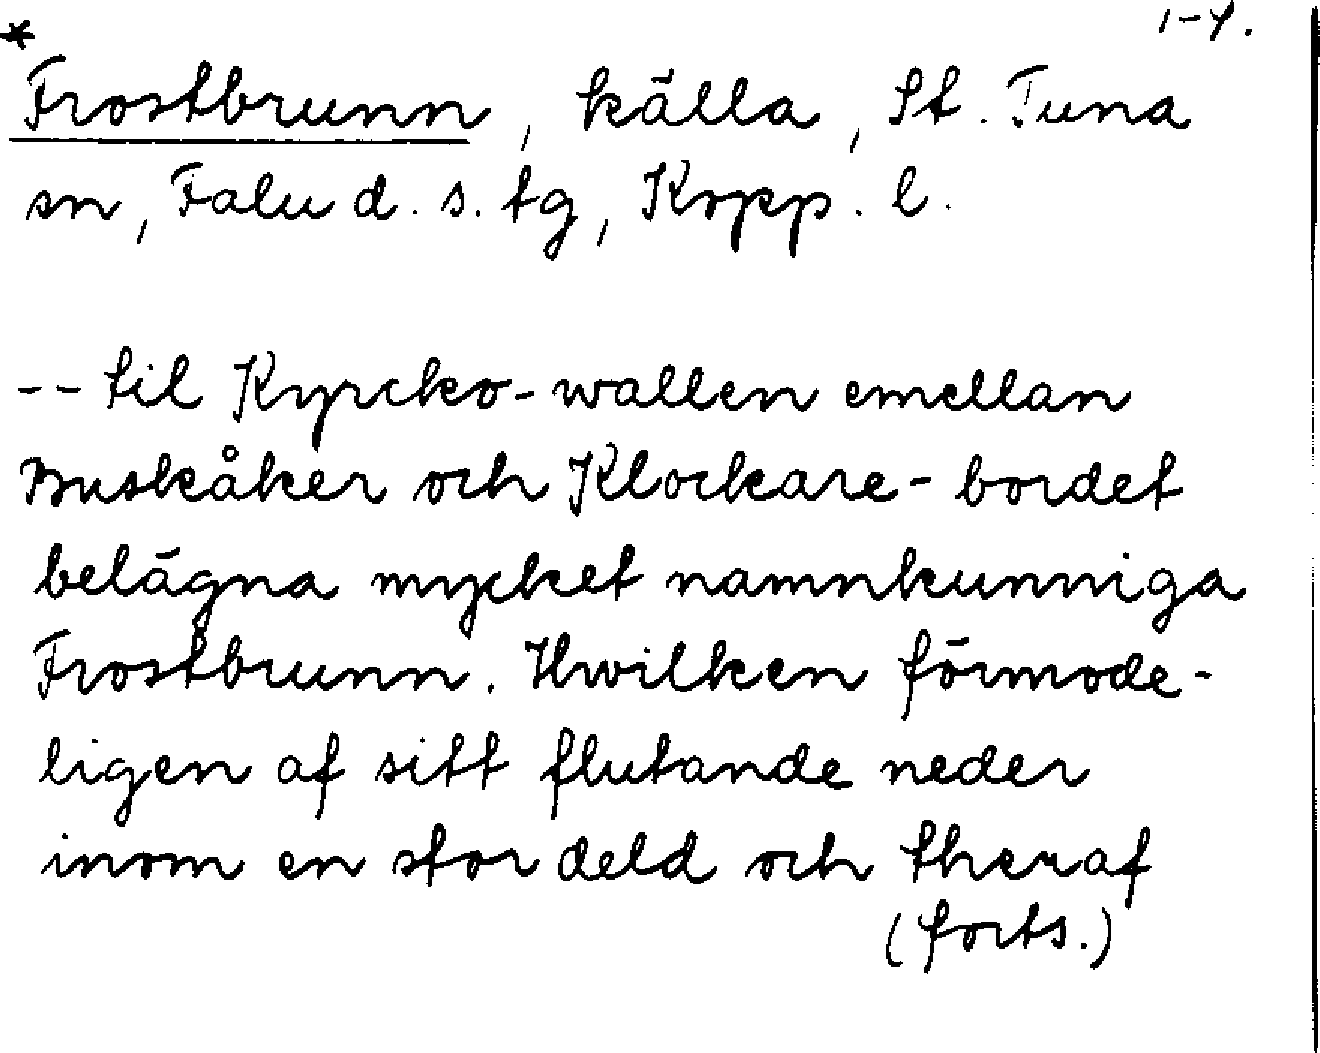 1-4.
*
Frostbrunn, källa, St. Tuna
sn, Falu d. s. tg, Kopp. l.
-- til Kyrcko-wallen emellan
Buskåker och Klockare-bordet
belägna mycket namnkunniga
Frostbrunn. Hwilken förmode-
ligen af sitt flutande neder
inom en stor deld och theraf
(forts.)